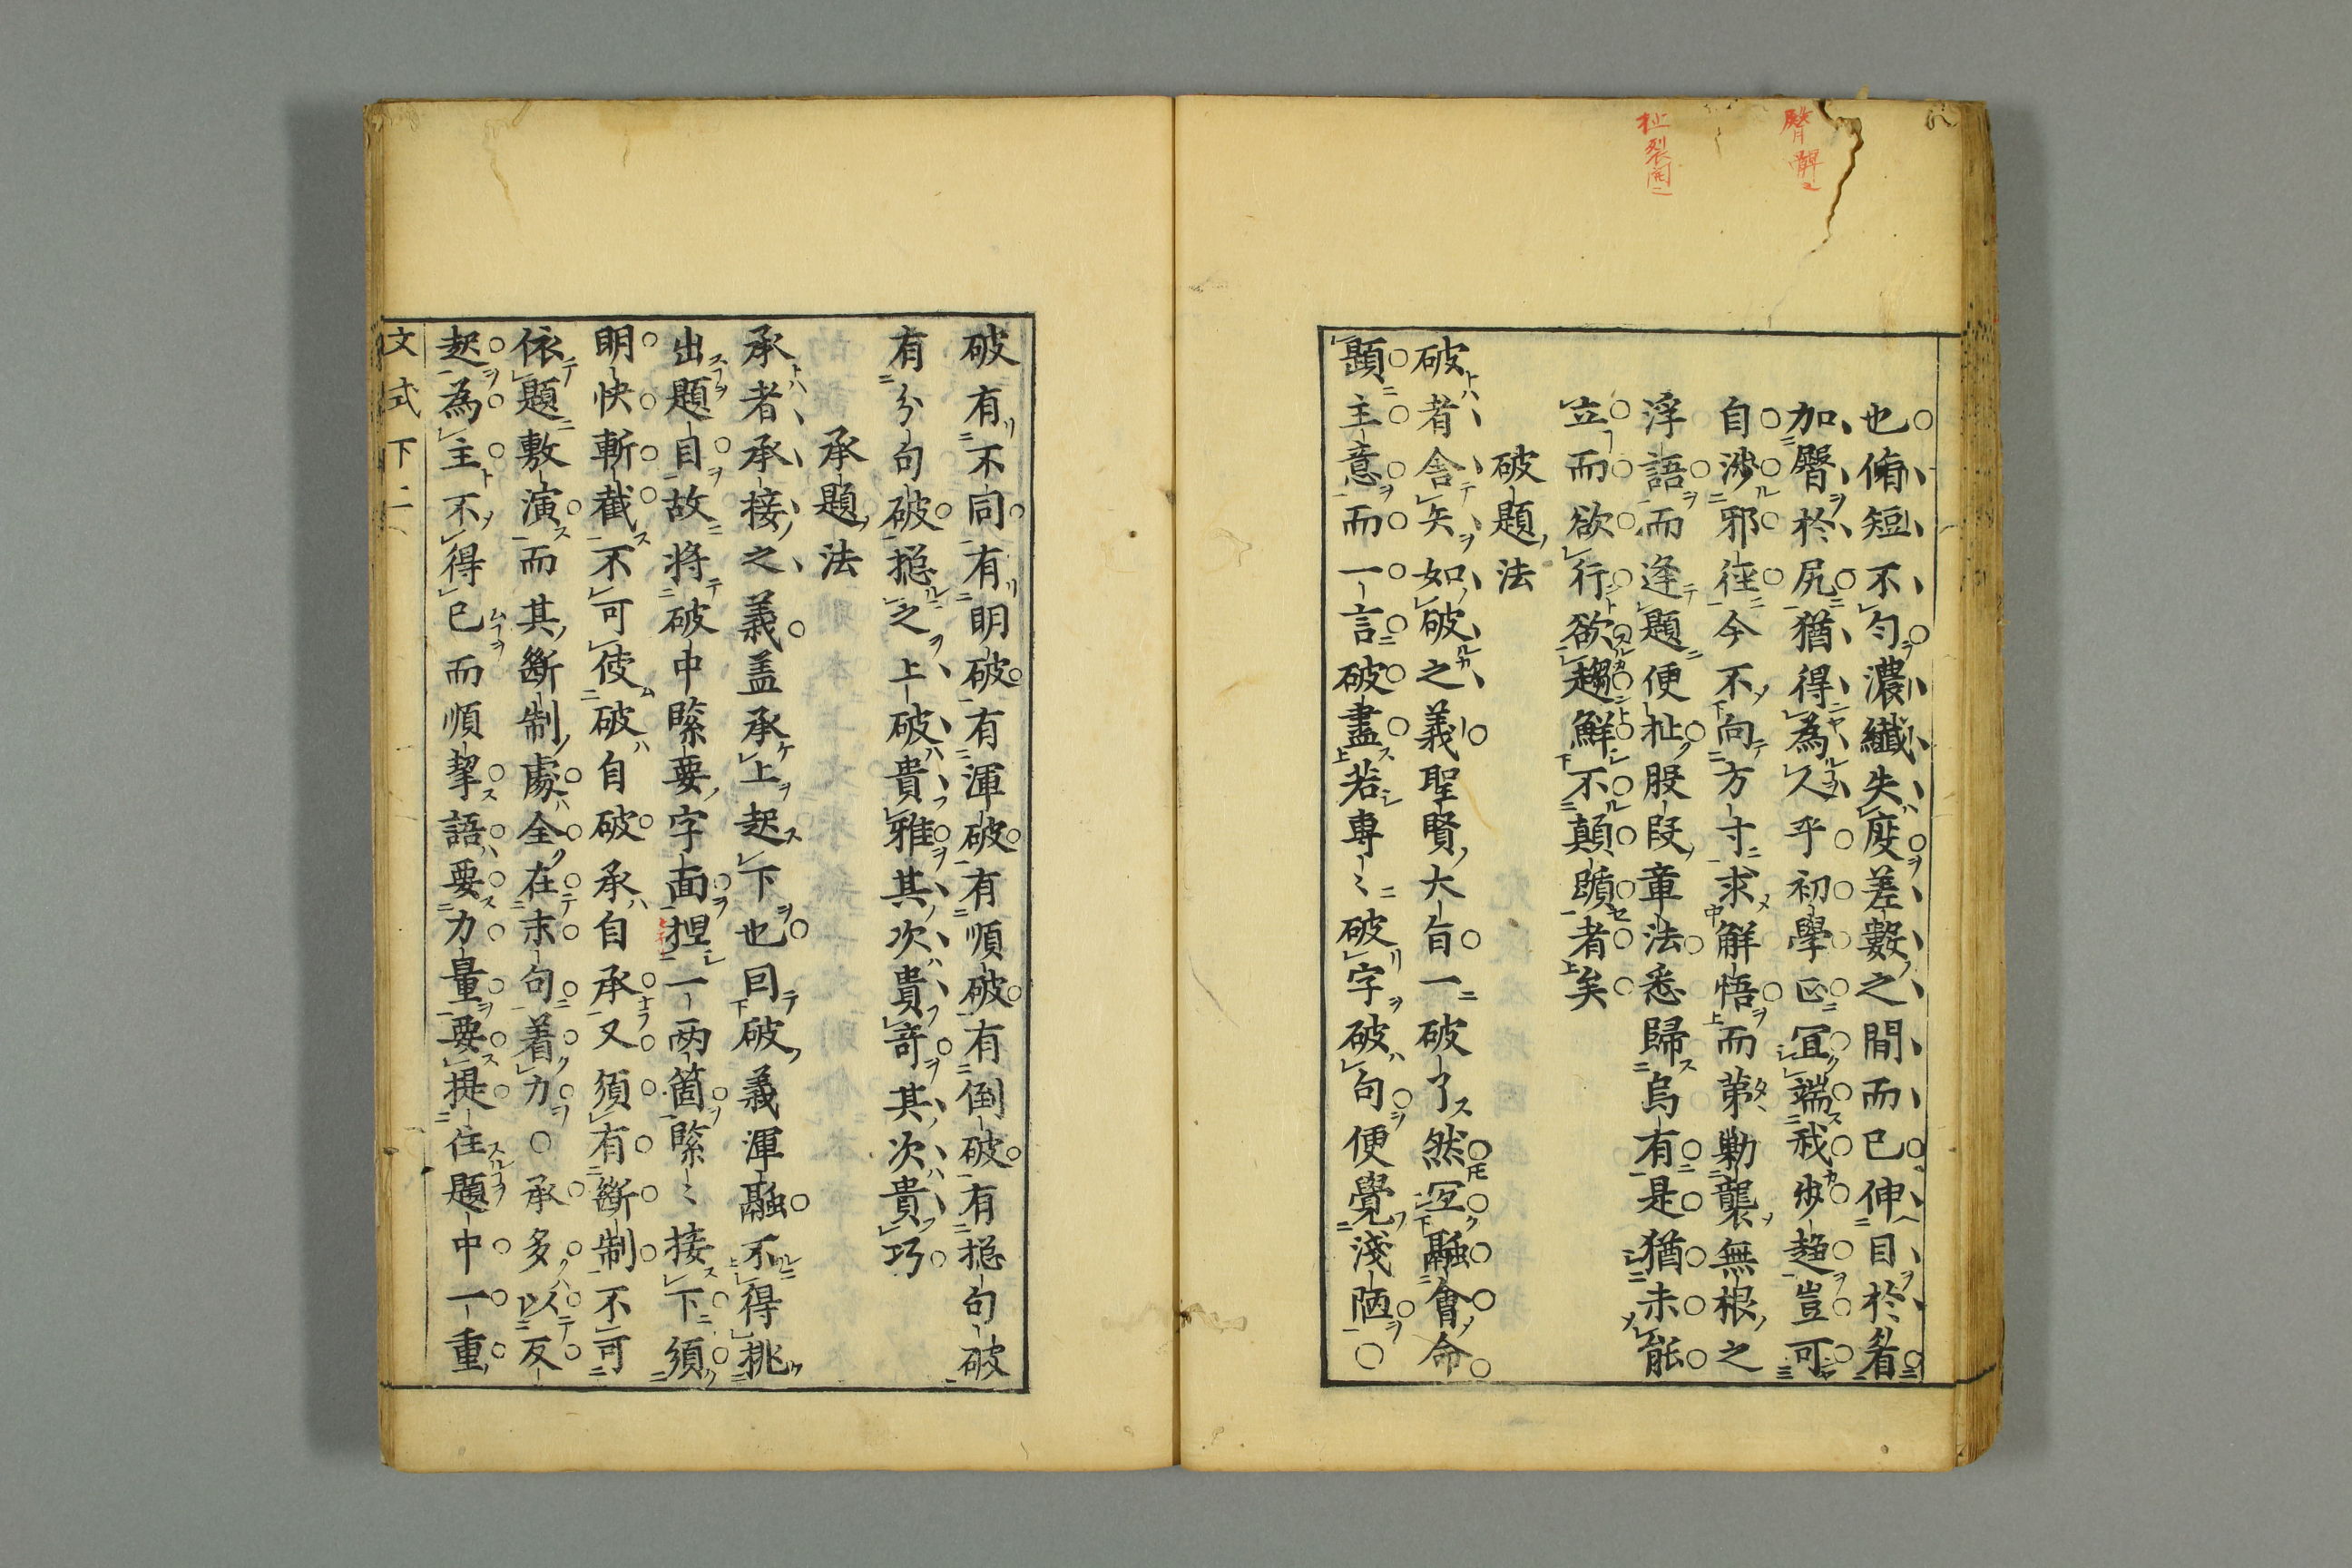 也脩短不勻濃纖失度差數之間而已伸目於看
加臀於尻猶得為人乎初學正宜端我步趨豈可
自涉邪徑今不向方寸求解悟而第勦襲無根之
浮語而逢題便扯股段章法悉歸烏有是猶未能
立而欲行欲趨鮮不顛躓者矣
破題法
破者舍矢如破之義聖賢大旨一破了然冝融會命
題主意而一言破盡若専〻破字破句便覺淺陋○
破有不同有明破有渾破有順破有倒破有捴句破
有分句破捴之上破貴雅其次貴竒其次貴巧
承題法
承者承接之義盖承上起下也囙破義渾融不得挑
出題目故將破中緊要字面揑一两箇緊〻接下須
明快斬截不可使破自破承自承又須有斷制不可
依題敷演而其斷制處全在末句着力○承多以反
起為主不得已而順挈語要力量要提住題中一重
文式下二
扯裂開
臀髀